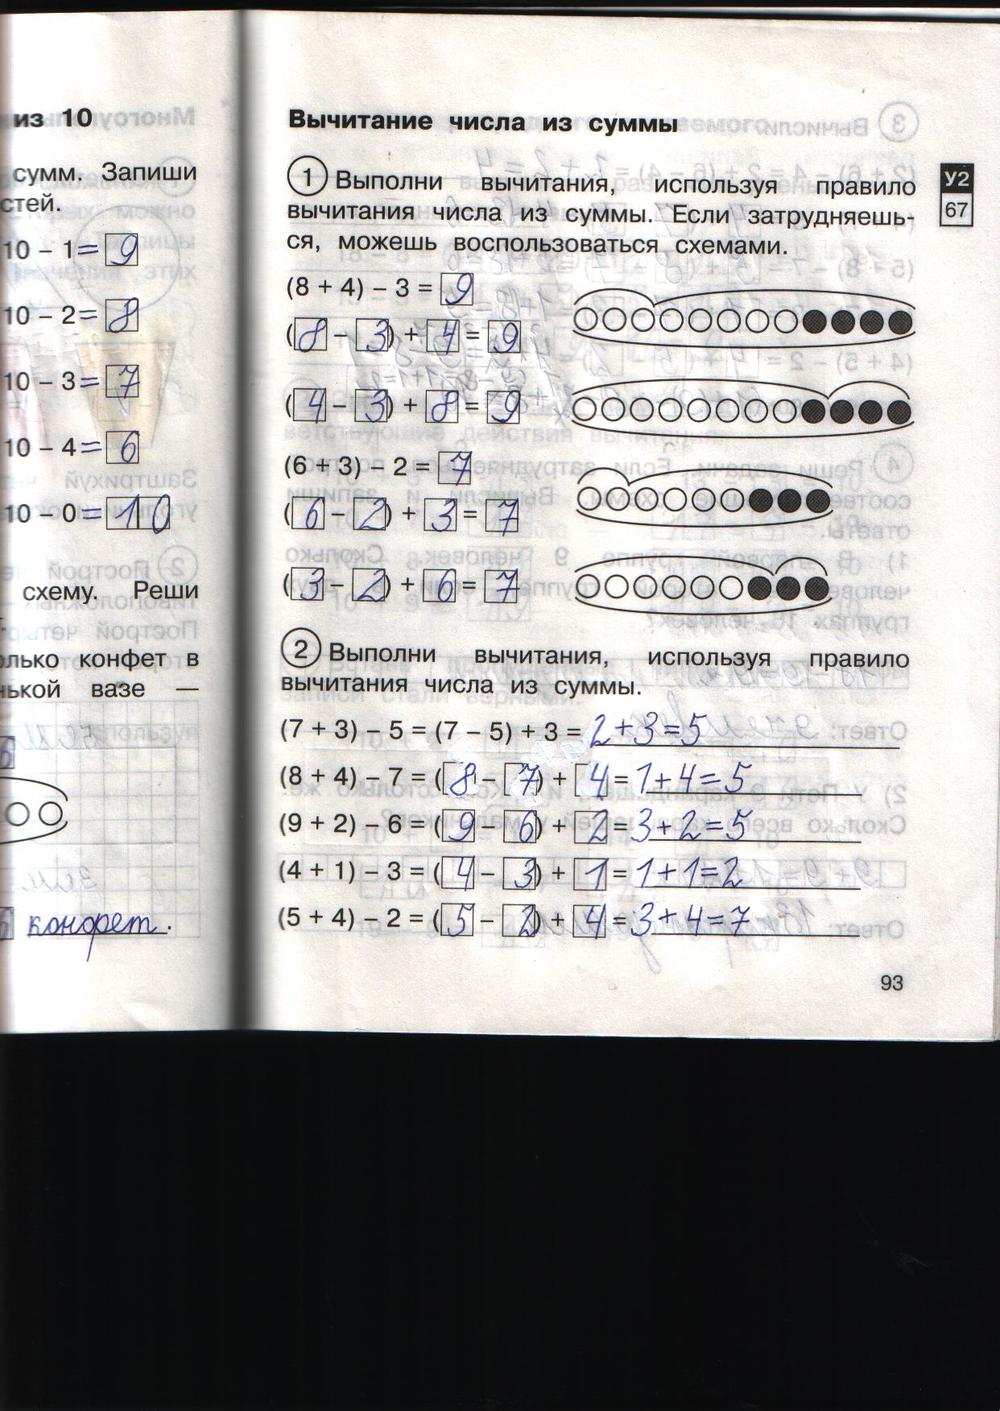 из 10
сумм. Запиши
стей.
10 - 1 = 9
10 - 2 = 8
10 - 3 = 7
10 - 4 = 6
10 - 0 = 10
схему. Реши
олько конфет в
нькой вазе —
6
6 конфет.
Вычитание числа из суммы
1 Выполни вычитания, используя правило
вычитания числа из суммы. Если затрудняешь-
ся, можешь воспользоваться схемами.
У2
67
(8 + 4) - 3 = 9
(8 - 3) + 4 = 9
(4 - 3) + 8 = 9
(6 + 3) - 2 = 7
(6 - 2) + 3 = 7
(3 - 2) + 6 = 7
2 Выполни вычитания, используя правило
вычитания числа из суммы.
(7 + 3) - 5 = (7 - 5) + 3 = 2+3=5
(8 + 4) - 7 = (8 - 7) + 4 = 1+4=5
(9 + 2) - 6 = (9 - 6) + 2 = 3+2=5
(4 + 1) - 3 = (4 - 3) + 1 = 1+1=2
(5 + 4) - 2 = (5 - 2) + 4 = 3+4=7
93